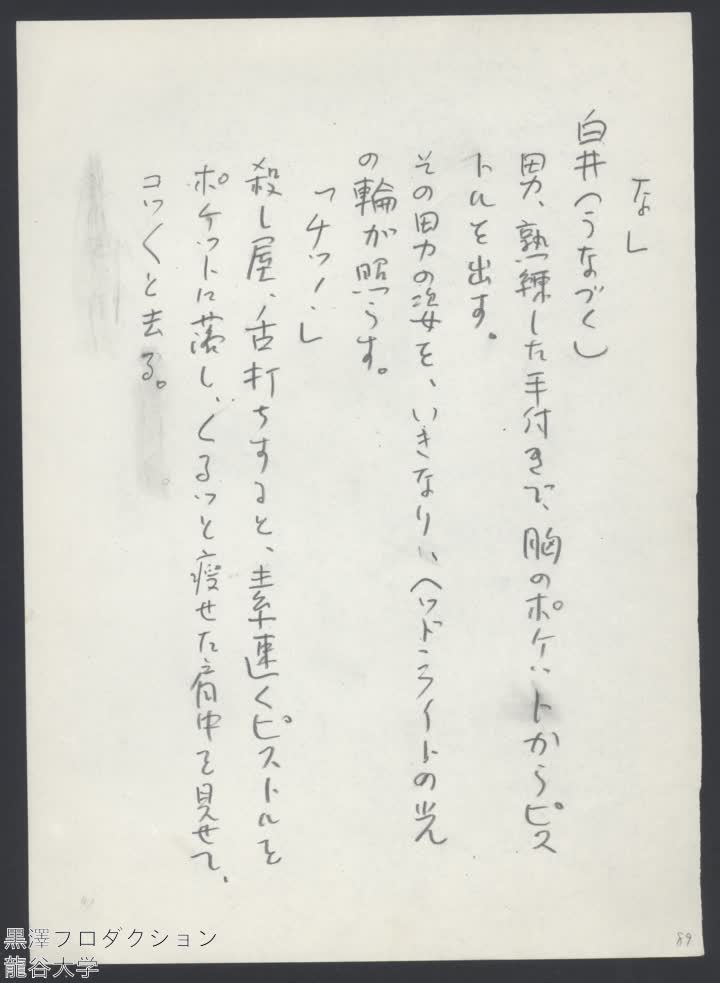 なし
白井(うなづく)
男、熟練した手付きで、胸のポケットからピス
トルを出す。
その男の姿を、いきなり、ヘッド・ライトの光
の輪が照らす。
「チッ!」
殺し屋、舌打ちすると、素速くピストルを
ポケットに落し、くるっと瘦せた背中を見せて、
コツコツと去る。
89
黒澤フロダクション
龍谷大学